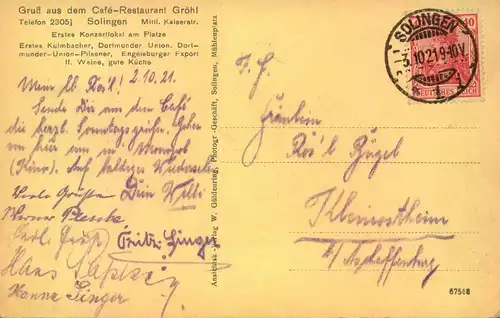 Gruß aus dem Café-Restaurant Gröhl
Telefon 2305 Solingen Mittl. Kaiserstr.
Erstes Konzertlokal am Platze
Erstes Kulmbacher, Dortmunder Union, Dort-
munder-Union-Pilsener, Engelsburger Export
ff. Weine, gute Küche
Mein lb. Rös'l! 2.10.21.
Sende Dir aus dem Café
die herzl. Sonntagsgrüße. Gehen
von hier aus in
(Kino). Auf baldiges Wiedersehn
Dein Willi
Werner
Fritz Singer
Hans
Hanna Singer
Ansichtsk.-Verlag W. Güldenring, Photogr.-Geschäft, Solingen, Mühlenplatz
SOLINGEN
3.10.21 9-10V.
1
40
DEUTSCHES REICH
Fräulein
Rös'l Hügel
Kleinostheim
b/ Aschaffenburg
67568